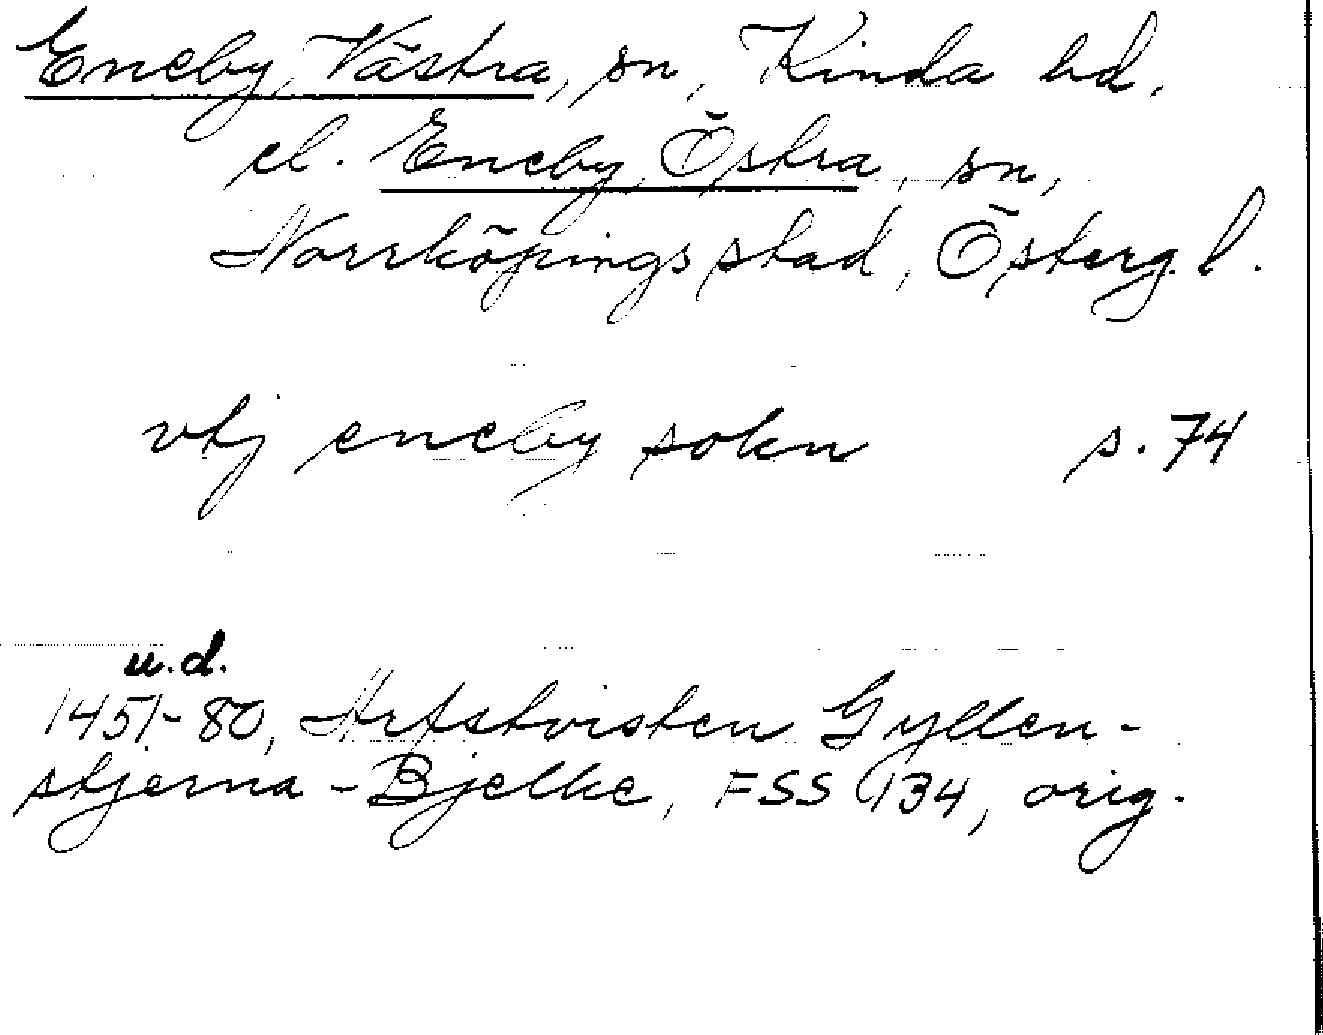 Eneby, Västra, sn, Kinda hd.
el. Eneby, Östra, sn,
Norrköpings stad, Österg. l.
vtj eneby sokn s. 74
u.d.
1451-80, Arfstvisten Gyllen-
stjerna - Bjelke, FSS 134, orig.